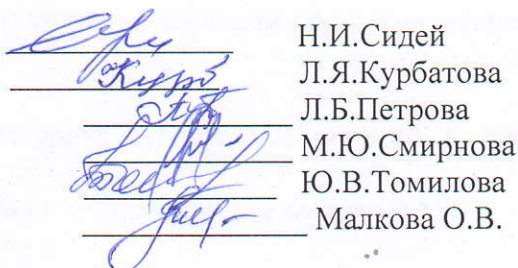 Н.И.Сидей
Л.Я.Курбатова
Л.Б.Петрова
М.Ю.Смирнова
Ю.В.Томилова
Малкова О.В.